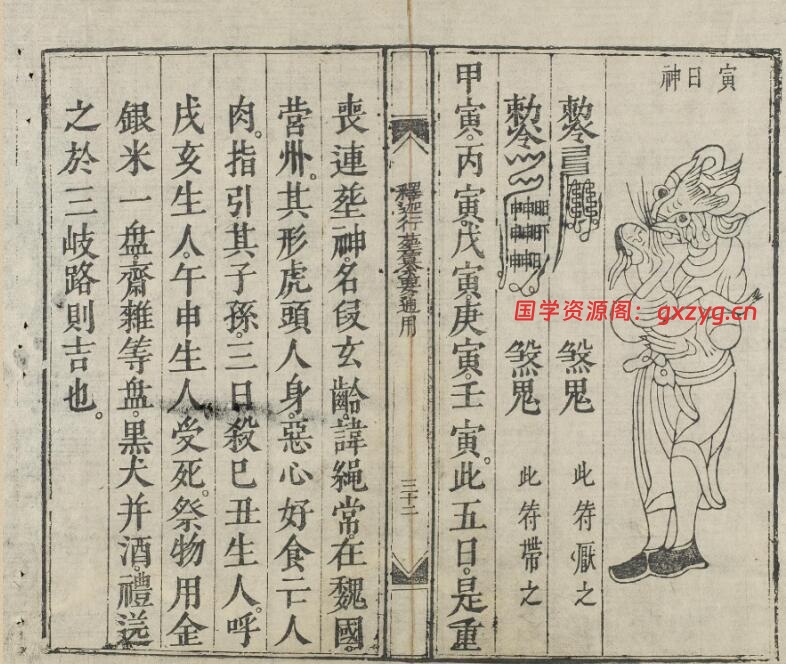 寅日神
勅令 煞鬼 此符厭之
勅令 煞鬼 此符帶之
甲寅。丙寅。戊寅。庚寅。壬寅。此五日。是重
釋迦行塟貫祭要通用
三十二
喪連塟神。名叚玄齡。諱繩常。在魏國。
营州。其形虎頭人身。惡心好食亡人
肉。指引其子孫。三日殺巳丑生人。呼
戌亥生人。午申生人受死。祭物用金
銀米一盘。齋雜等盘。黒犬并酒。禮送
之於三岐路則吉也。
国学资源阁：gxzyg.cn